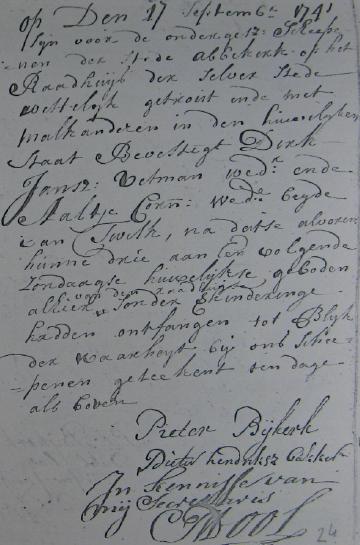 op Den 17 Septembr 1741
Zijn voor de ondergesz: Scheepe-
nen der Stede abbekerk op het
Raadhuijs der Selver Stede
wettelijk getrouwt ende met
malkanderen in den huwelijken
Staat Bevestigt Dirk
Jansz: Vetman wedr: ende
Aaltje Corn: wede beyde
van Twisk, na datse alvoren
hunne drie aan een volgende
Zondaagse huwelijkse geboden
alhier van den Raadhuijse Sonder Verhinderinge
hadden ontfangen tot Blijk
der Waarheyt bij ons Schee-
penen geteekent ten dage
als boven
Pieter Bijkerk
Pieter hendriksz
In kennisse van
mij Secretaris
24